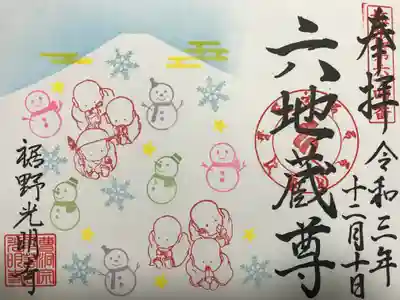 奉拝
令和三年
十二月十日
六地蔵尊
裾野光明寺